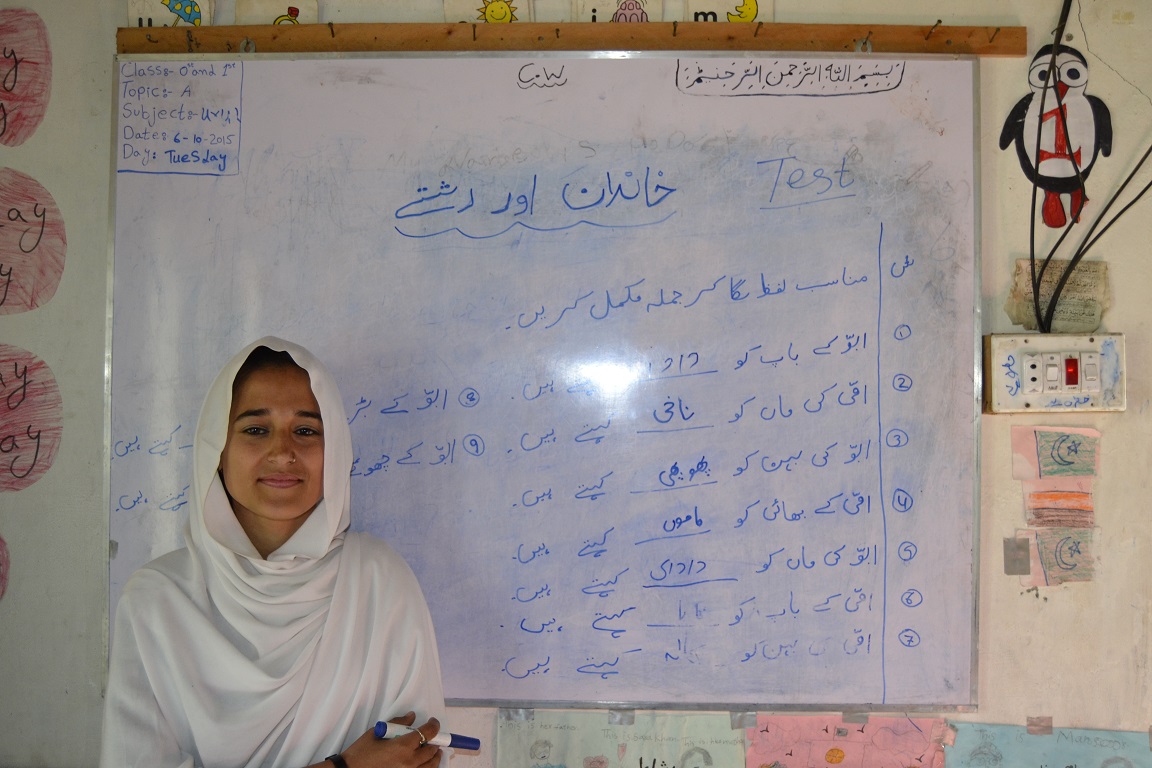 Class:- 0 and 1st
Topic:- A
Subject:-
Date: 6-10-2015
Day: Tuesday
Test
خاندان اور رشتے
س
مناسب لفظ لگا کر جملہ مکمل کریں۔
① ابوّ کے باپ کو دادا کہتے ہیں۔
② امّی کی ماں کو نانی کہتے ہیں۔
③ ابوّ کی بہن کو پھوپھی کہتے ہیں۔
④ امّی کے بھائی کو ماموں کہتے ہیں۔
⑤ ابوّ کی ماں کو دادی کہتے ہیں۔
⑥ امّی کے باپ کو نانا کہتے ہیں۔
⑦ امّی کی بہن کو کہتے ہیں۔
⑧ ابوّ کے بڑ کہتے ہیں۔
⑨ ابوّ کے چھوٹے کہتے ہیں۔
m
1
ay
y
ay